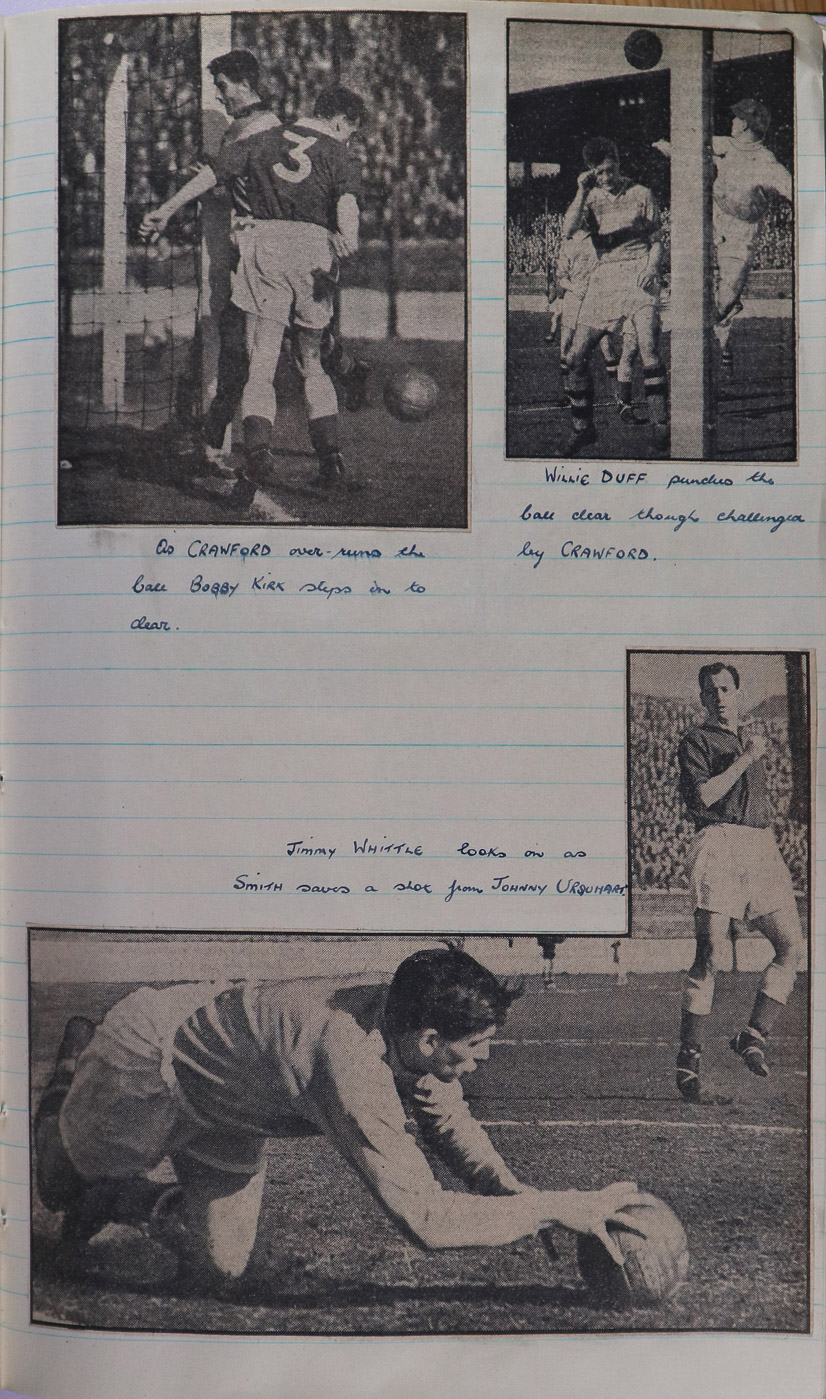 3
As CRAWFORD over-runs the
ball BOBBY KIRK steps in to
clear.
WILLIE DUFF punches the
ball clear though challenged
by CRAWFORD.
Jimmy WHITTLE looks on as
SMITH saves a shot from JOHNNY URQUHART.